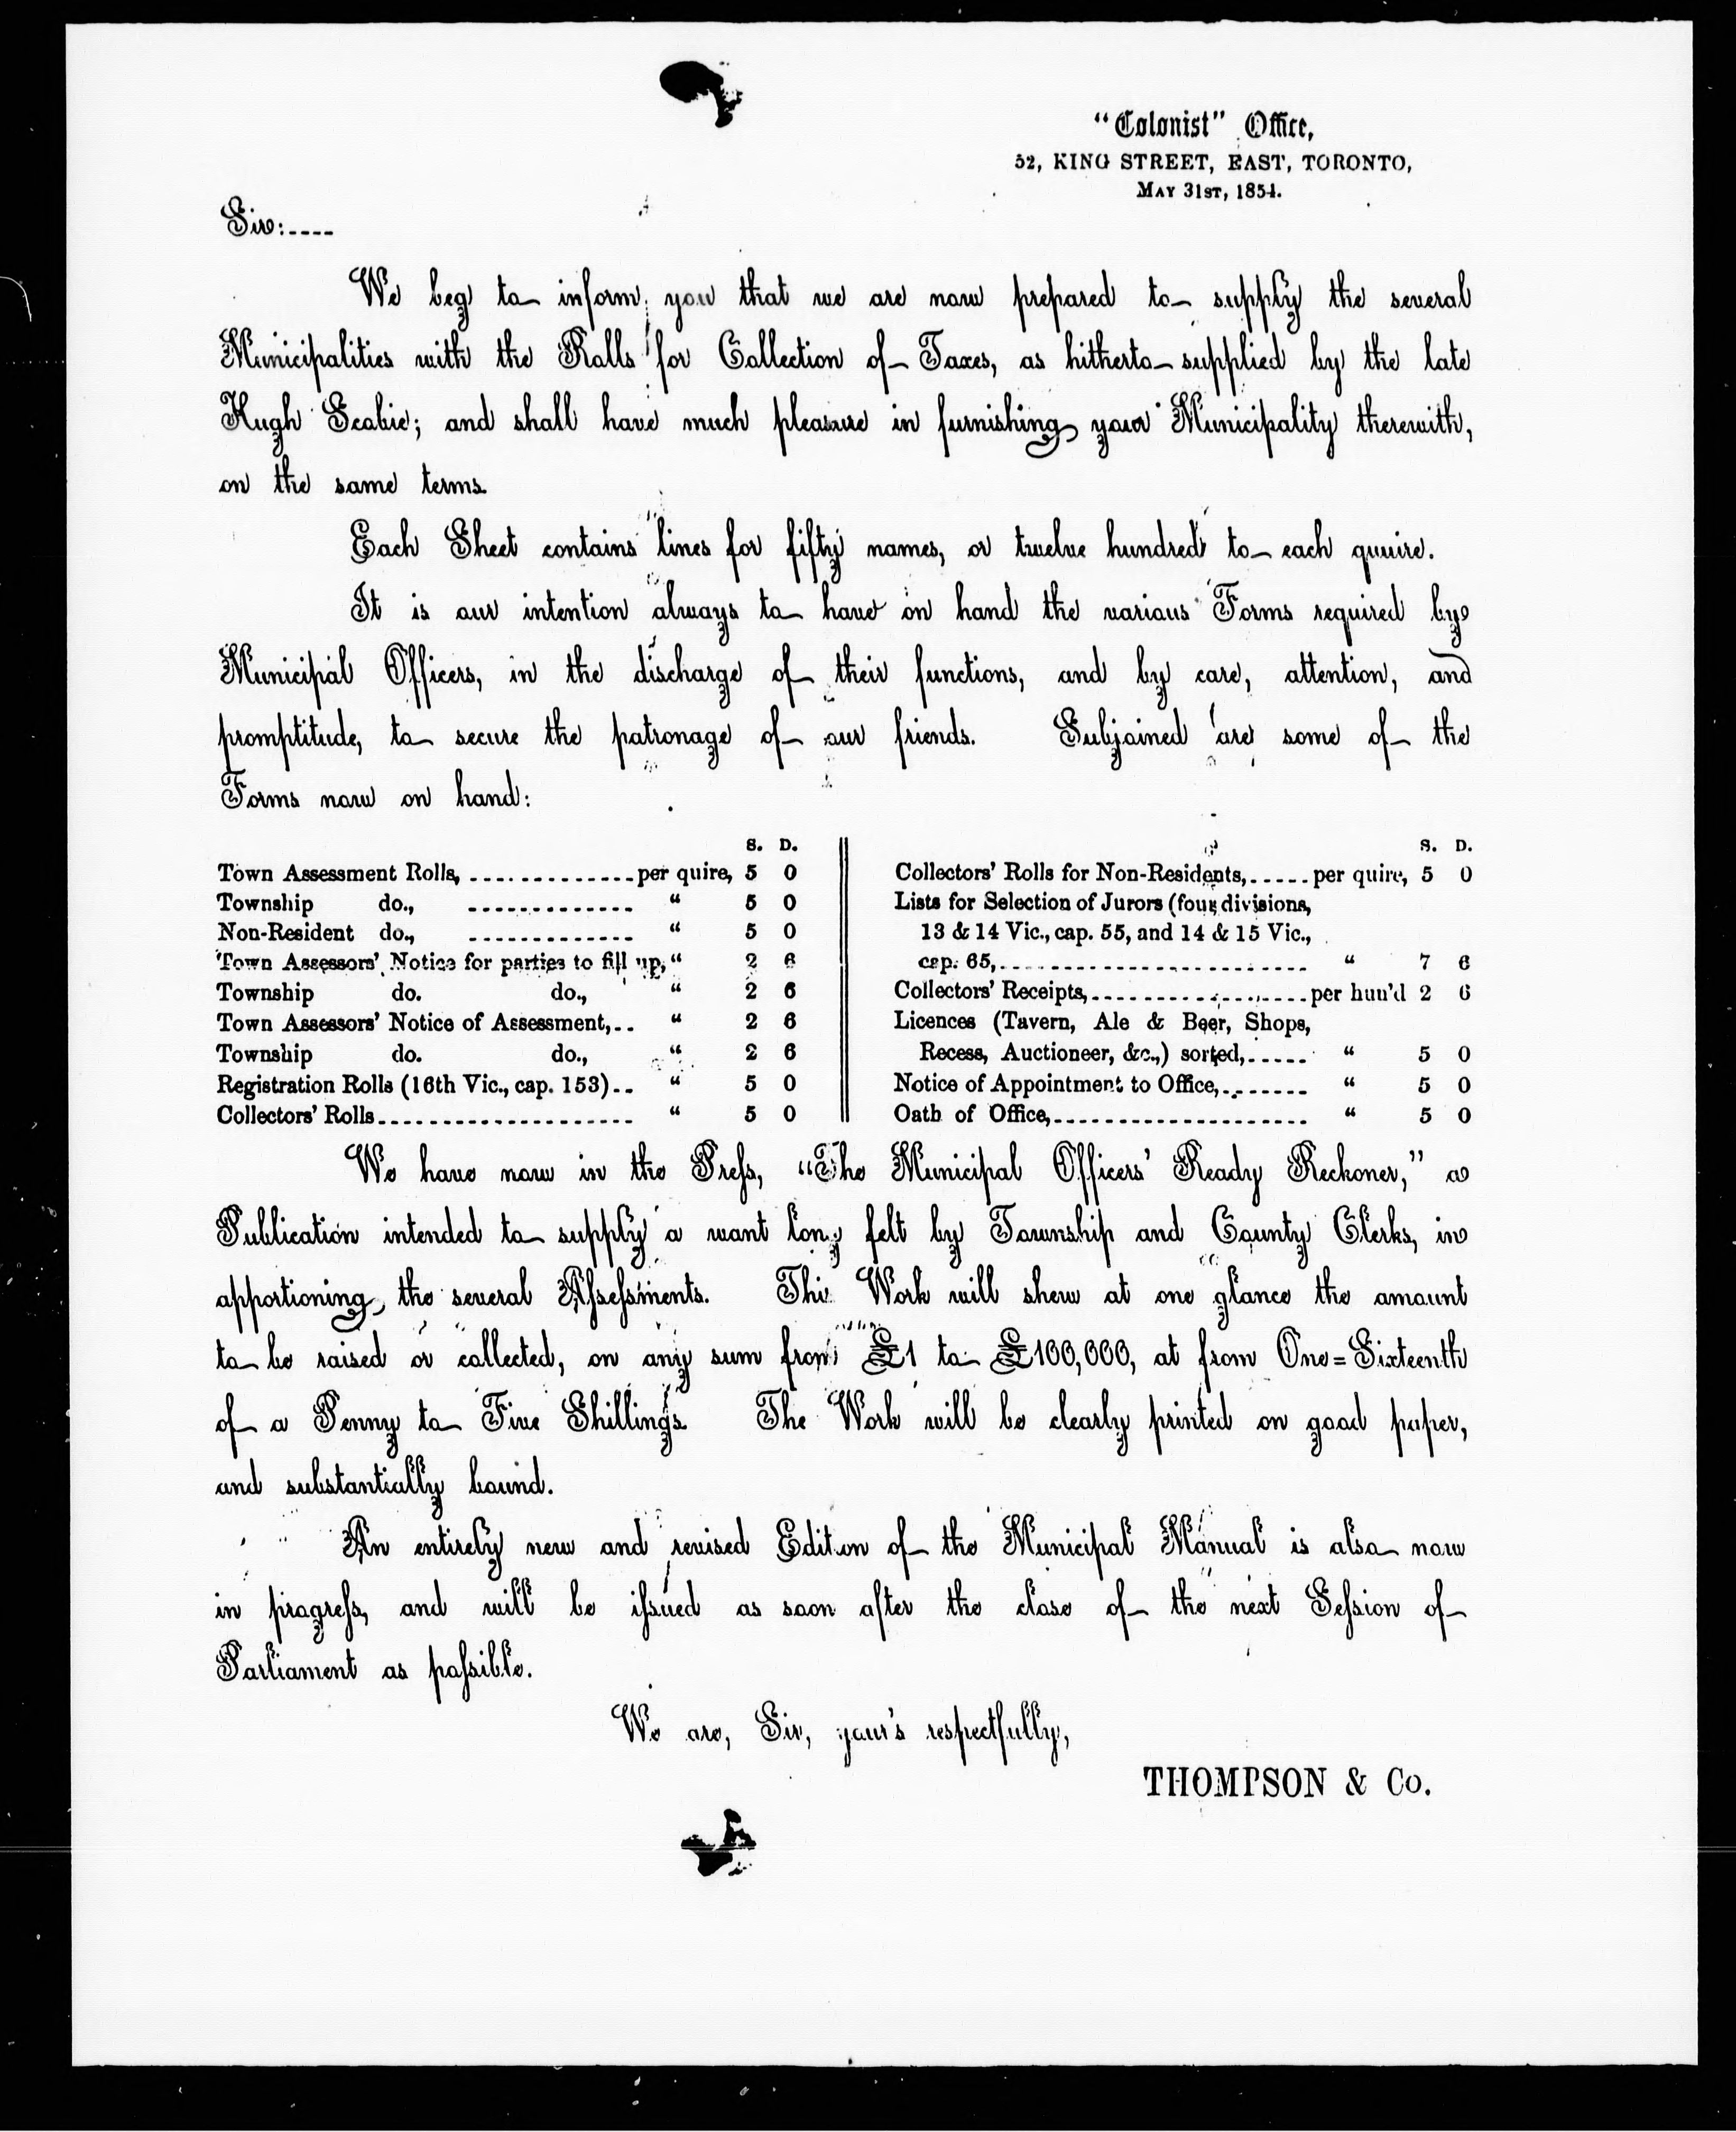 "Colonist" Office,
52, KING STREET, EAST, TORONTO,
MAY 31ST, 1854.
Sir:----
We beg to inform you that we are now prepared to supply the several
Municipalities with the Rolls for Collection of Taxes, as hitherto supplied by the late
Hugh Scobie; and shall have much pleasure in furnishing your Municipality therewith,
on the same terms.
Each Sheet contains lines for fifty names, or twelve hundred to each quire.
It is our intention always to have on hand the various Forms required by
Municipal Officers, in the discharge of their functions, and by care, attention, and
promptitude, to secure the patronage of our friends. Subjoined are some of the
Forms now on hand:
S. D.
Town Assessment Rolls, ............. per quire, 5 0
Township do., ............. " 5 0
Non-Resident do., ............. " 5 0
Town Assessors' Notice for parties to fill up, " 2 6
Township do. do., " 2 6
Town Assessors' Notice of Assessment,.. " 2 6
Township do. do., " 2 6
Registration Rolls (16th Vic., cap. 153).. " 5 0
Collectors' Rolls.................... " 5 0
S. D.
Collectors' Rolls for Non-Residents,..... per quire, 5 0
Lists for Selection of Jurors (four divisions,
13 & 14 Vic., cap. 55, and 14 & 15 Vic.,
cap. 65,........................ " 7 6
Collectors' Receipts,.................. per hun'd 2 6
Licences (Tavern, Ale & Beer, Shops,
Recess, Auctioneer, &c.,) sorted,...... " 5 0
Notice of Appointment to Office,........ " 5 0
Oath of Office,..................... " 5 0
We have now in the Press, "The Municipal Officers' Ready Reckoner," a
Publication intended to supply a want long felt by Township and County Clerks, in
apportioning the several Assessments. This Work will shew at one glance the amount
to be raised or collected, on any sum from £1 to £100,000, at from One=Sixteenth
of a Penny to Five Shillings. The Work will be clearly printed on good paper,
and substantially bound.
An entirely new and revised Edition of the Municipal Manual is also now
in progress, and will be issued as soon after the close of the next Session of
Parliament as possible.
We are, Sir, your's respectfully,
THOMPSON & Co.